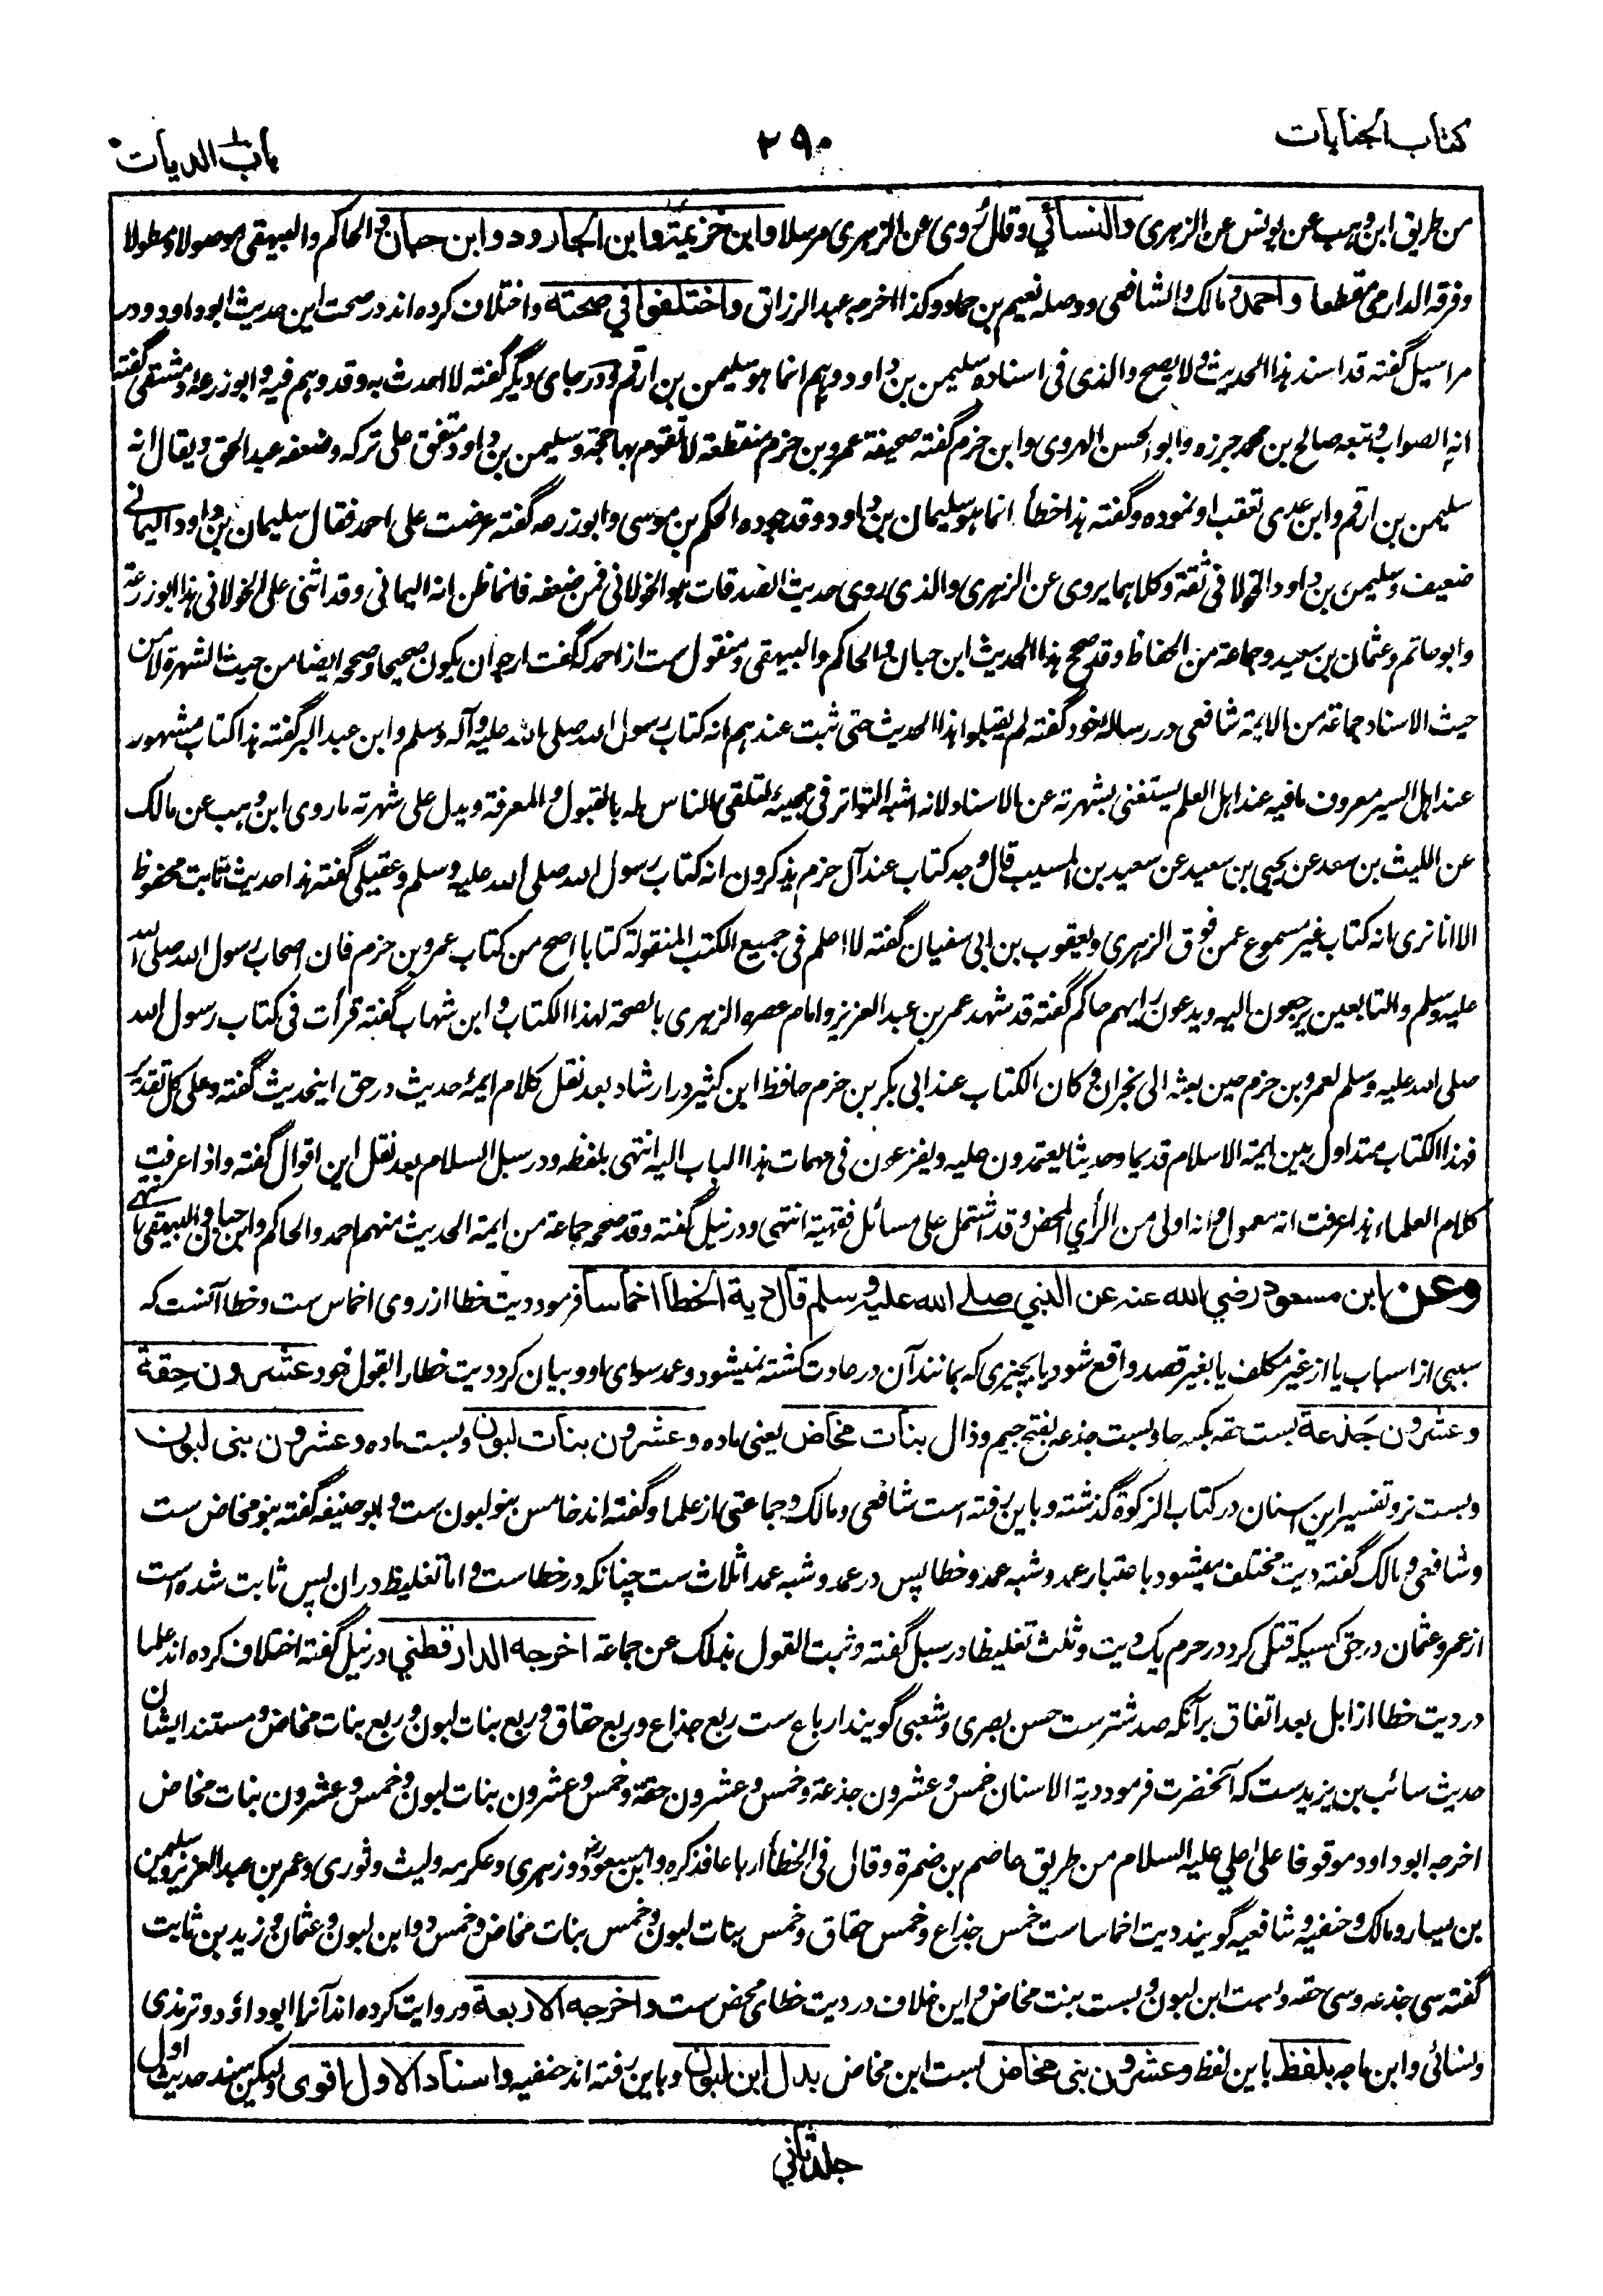 کتاب الجنایات
۲۹۰
باب الدیات
من طریق ابن وہب عن یونس عن الزہری والنسائي وقال روی عن الزہری مرسلا وابن خزیمة وابن الجارود وابن حبان والحاکم والبیہقی موصولا مطولا
وفرقہ الدارمی مقطعا واحمد ومالک والشافعی ووصلہ نعیم بن حماد وکذا اخرجہ عبد الرزاق واختلفوا في صحته واختلاف کردہ اند در صحت این حدیث ابوداود در
مراسیل گفتہ قد اسند ہذا الحدیث ولا یصح والذی فی اسنادہ سلیمن بن داود وہم انما ہو سلیمن بن ارقم ودر جای دیگر گفتہ لا احدث بہ وقد وہم فیہ وابوزرعہ دمشقی گفتہ
انہ الصواب وتبعہ صالح بن محمد جزرہ وابو الحسن الہروی وابن حزم گفتہ صحیفة عمرو بن حزم منقطعة لا تقوم بہا حجة وسلیمن بن داود متفق علی ترکہ وضعفہ عبد الحق ویقال انہ
سلیمن بن ارقم وابن عدی تعقب او نمودہ وگفتہ ہذا خطأ انما ہو سلیمان بن داود وقد جودہ الحکم بن موسی وابوزرعہ گفتہ عرضت علی احمد فقال سلیمان بن داود الیمانے
ضعیف وسلیمن بن داود الخولانی ثقة وکلاہما یروی عن الزہری والذی روی حدیث الصدقات ہو الخولانی فمن ضعفہ فانما ظن انہ الیمانی وقد اثنی علی الخولانی ہذا ابوزرعة
وابو حاتم وعثمان بن سعید وجماعة من الحفاظ وقد صحح ہذا الحدیث ابن حبان والحاکم والبیہقی ومنقول ست از احمد کہ گفت ارجو ان یکون صحیحا وصححہ ایضا من حیث الشہرة لا من
حیث الاسناد جماعة من الایمة شافعی در رسالہ خود گفتہ لم یقبلوا ہذا الحدیث حتی ثبت عندہم انہ کتاب رسول اللہ صلی اللہ علیہ وآلہ وسلم وابن عبد البر گفتہ ہذا کتاب مشہور
عند اہل السیر معروف ما فیہ عند اہل العلم یستغنی بشہرتہ عن الاسناد لانہ اشبہ التواتر فی مجیئہ لتلقی الناس لہ بالقبول والمعرفة ویدل علی شہرتہ ما روی ابن وہب عن مالک
عن اللیث بن سعد عن یحیی بن سعید عن سعید بن المسیب قال وجد کتاب عند آل حزم یذکرون انہ کتاب رسول اللہ صلی اللہ علیہ وسلم وعقیلی گفتہ ہذا حدیث ثابت محفوظ
الا انا نری انہ کتاب غیر مسموع عمن فوق الزہری ویعقوب بن ابی سفیان گفتہ لا اعلم فی جمیع الکتب المنقولة کتابا اصح من کتاب عمرو بن حزم فان اصحاب رسول اللہ صلی اللہ
علیہ وسلم والتابعین یرجعون الیہ ویدعون رایہم حاکم گفتہ قد شہد عمر بن عبد العزیز وامام عصرہ الزہری بالصحة لہذا الکتاب وابن شہاب گفتہ قرأت فی کتاب رسول اللہ
صلی اللہ علیہ وسلم لعمرو بن حزم حین بعثہ الی نجران وکان الکتاب عند ابی بکر بن حزم حافظ ابن کثیر در ارشاد بعد نقل کلام ایمۂ حدیث در حق اینحدیث گفتہ وعلی کل تقدیر
فہذا الکتاب متداول بین ایمة الاسلام قدیما وحدیثا یعتمدون علیہ ویفزعون فی مہمات ہذا الباب الیہ انتہی بلفظہ ودر سبل السلام بعد نقل این اقوال گفتہ واذا عرفت
کلام العلماء ہذا عرفت انہ معمول وانہ اولی من الرأي المحض وقد اشتمل علی مسائل فقہیة انتہی ودر نیل گفتہ وقد صححہ جماعة من ایمة الحدیث منہم احمد والحاکم وابن حبان والبیہقی انتہے
وعن ابن مسعود رضي الله عنه عن النبي صلے الله علیه وسلم قال دیة الخطا اخماسا فرمود دیت خطا از روی اخماس ست وخطا آنست کہ
سببی از اسباب یا از غیر مکلف یا بغیر قصد واقع شود یا بچیزی کہ بمانند آن در عادت کشتہ نمیشود وعمد سوای او وبیان کرد دیت خطا را بقول خود عشرون حقة
وعشرون جذعة بست حقہ بکسر حا وبست جذعہ بفتح جیم وذال بنات مخاض یعنی مادہ وعشرون بنات لبون وبست مادہ وعشرون بنی لبون
وبست نر وتفسیر این اسنان در کتاب الزکوة گذشتہ وباین رفتہ است شافعی ومالک وجماعتی از علما وگفتہ اند خامس بنو لبون ست وابو حنیفہ گفتہ بنو مخاض ست
وشافعی ومالک گفتہ دیت مختلف میشود باعتبار عمد وشبہ عمد وخطا پس در عمد وشبہ عمد اثلاث ست چنانکہ در خطاست واما تغلیظ دران پس ثابت شدہ است
از عمر وعثمان در حق کسیکہ قتلی کرد در حرم یک دیت وثلث تغلیظا در سبل گفتہ وثبت القول بذلک عن جماعة اخرجه الدارقطني در نیل گفتہ اختلاف کردہ اند علما
در دیت خطا از ابل بعد اتفاق برآنکہ صد شترست حسن بصری وشعبی گویند ارباع ست ربع جذاع وربع حقاق وربع بنات لبون وربع بنات مخاض ومستند ایشان
حدیث سائب بن یزید ست کہ آنحضرت فرمود دیة الاسنان خمس وعشرون جذعة وخمس وعشرون حقة وخمس وعشرون بنات لبون وخمس وعشرون بنات مخاض
اخرجہ ابوداود موقوفا علی علي علیہ السلام من طریق عاصم بن ضمرة وقال فی الخطأ ارباعا فذکرہ وابن مسعود وزہری وعکرمہ ولیث وثوری وعمر بن عبد العزیز وسلیمن
بن یسار ومالک وحنفیہ وشافعیہ گویند دیت اخماسا ست خمس جذاع وخمس حقاق وخمس بنات لبون وخمس بنات مخاض وخمس ابن لبون وعثمان وزید بن ثابت
گفتہ سی جذعہ وسی حقہ وبست ابن لبون وبست بنت مخاض واین خلاف در دیت خطای محض ست واخرجه الاربعة وروایت کردہ اند آنرا ابوداؤد وترمذی
ونسائی وابن ماجہ بلفظ باین لفظ وعشرون بنی مخاض بست ابن مخاض بدل ابن لبون وباین رفتہ اند حنفیہ واسناد الاول اقوی ولیکن سند حدیث اول
جلد ثانی